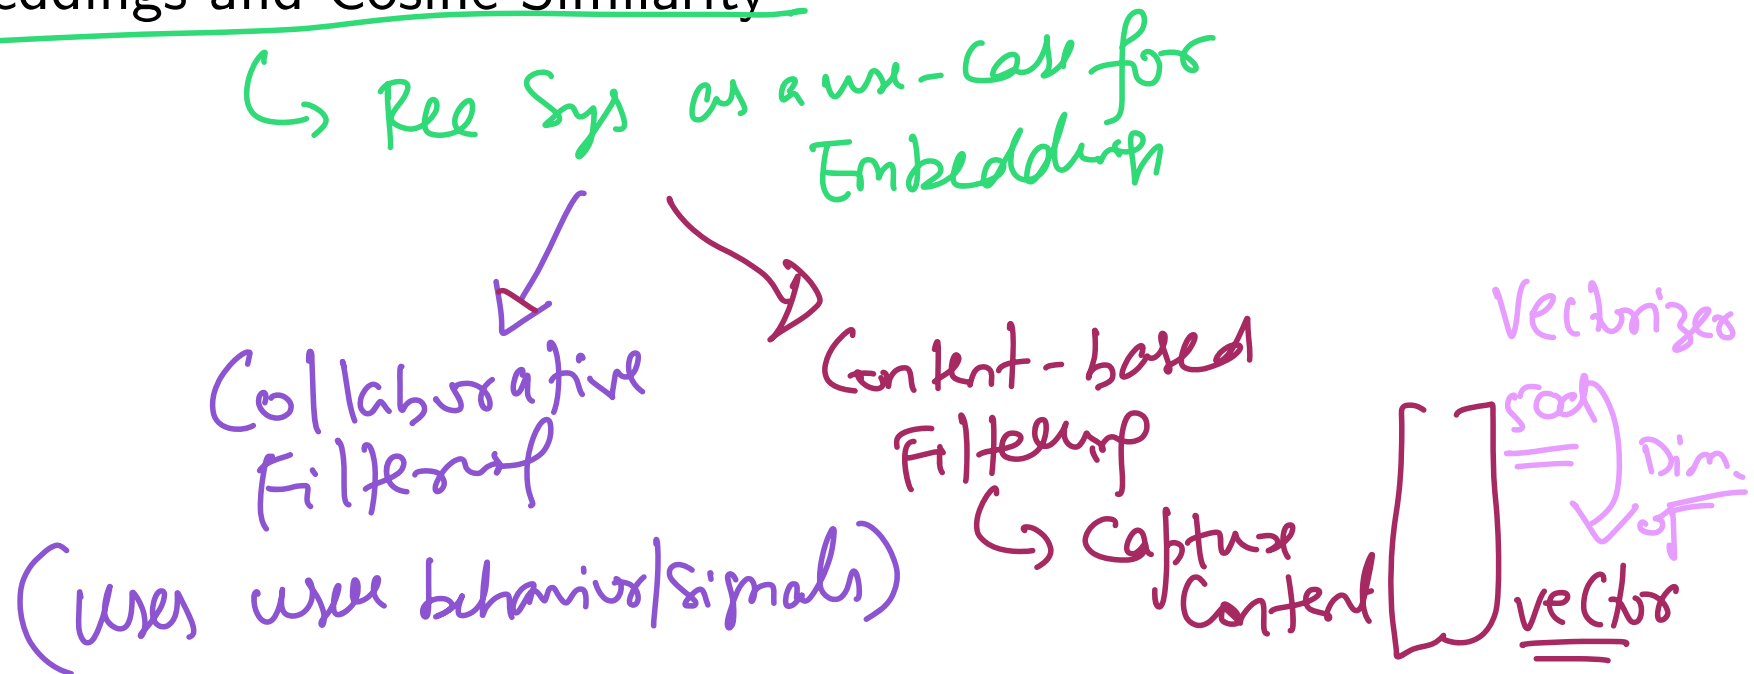 eddings and Cosine Similarity
Rec Sys as a use-case for
Embeddings
Collaborative
Filtering
(uses user behavior/signals)
Content-based
Filtering
Capture
Content
Vectorizer
Dim.
of
vector